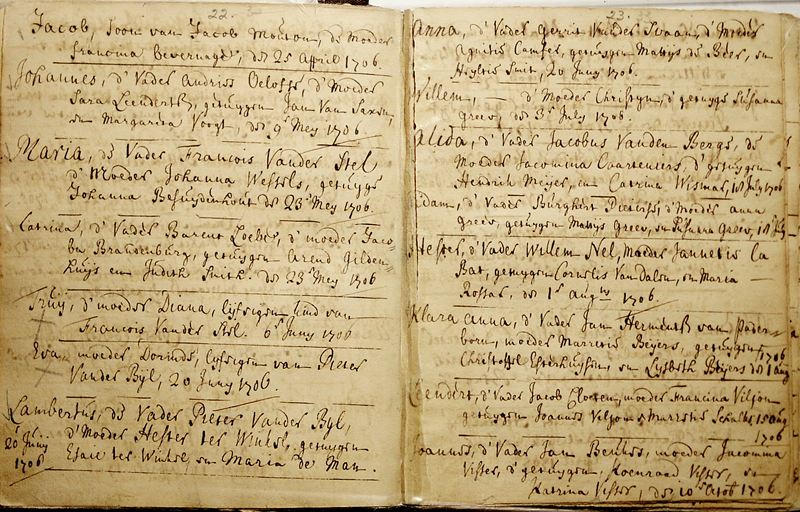 22.
Jacob, Soon van Jacob Mouton, de Moeder
Francina Bevernage, den 25 April 1706.
Johannes, d'Vader Andries Oelofse, d'Moeder
Sara Leendertz, getuygen Jan Van Saxen,
en Margarita Voogt, den 9 Mey 1706
Maria, de Vader Francois Vander Stel
d'Moeder Johanna Wessels, getuyge
Johanna Besuydenhout den 23 Mey 1706.
Catrina, d'Vader Barent, d'moeder Jaco-
ba Brandenburg, getuygen Arend Gilden-
Huys en Judith Smith. den 23 Mey 1706
Truy, d'moeder Diana, lijfeigen kind van
Francois Vander Stel. 6 Juny 1706
Eva, moeder Dorinde, lijfeigen van Pieter
Vander Byl, 20 Juny 1706.
Lambertus, de Vader Pieter Vander Byl,
d'Moeder Hester ter Winkel, getuigen
Esaie ter Winkel, en Maria de Man.
20 Juny
1706
23.
Anna, d'Vader Gerrit Vander Swaan, d'Moeder
Agnitis Camfer, getuygen Mattys de Beer, en
Smit, 20 Juny 1706.
Willem, — d'Moeder Christyn, d'getuyge Susanna
greev, den 3 July 1706.
Alida, d'Vader Jacobus Vanden Berg, de
Moeder Jacomina Caarteniers, d'getuygen
Hendrik Meyer, en Catrina Wismar, July 1706
Adam, d'Vader Burghert Pietersz, d'Moeder anna
greev, getuygen Mattys Greev, en Susanna Greev,
Hester, d'Vader Willem Nel, moeder Jannetie la
Bat, getuygen Cornelis Van Dalen, en Maria —
Rossar, den 1 augty 1706.
Klara anna, d'Vader Jan Hermensz van Pader-
born, moeder Marretie Beyers, getuygen
Christoffel Esterhuysen, en Lysbeth Beyers den 1 aug
1706
Leendert, d'Vader Jacob Cloeten, moeder Francina Viljon
getuygen Joannes Viljon en Marretie Schalks, 15 aug
1706
Joannes, d'Vader Jan Benkes, moeder Jacomina
Visser, d'getuygen, Koenraad Visser, en —
Katrina Visser, den 10 Octob 1706.